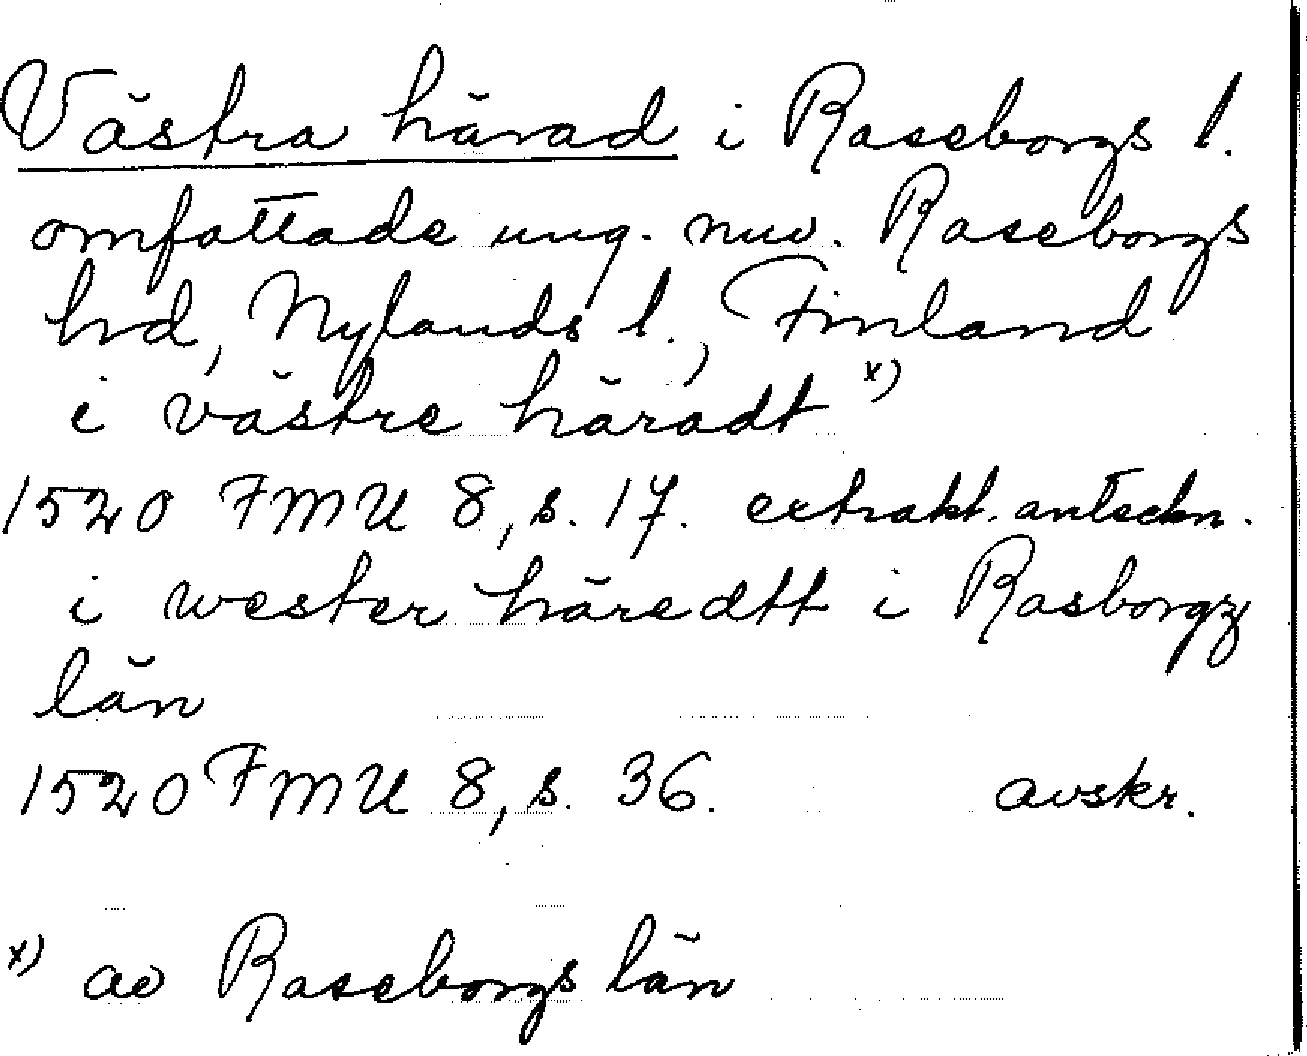 Västra härad i Raseborgs l.
omfattade ung. nuv. Raseborgs
hd, Nylands l., Finland
i västre häradt x)
1520 FMU 8, s. 17. extrakt. anteckn.
i wester häredtt i Rasborgz
län
1520 FMU 8, s. 36. avskr.
x) av Raseborgs län